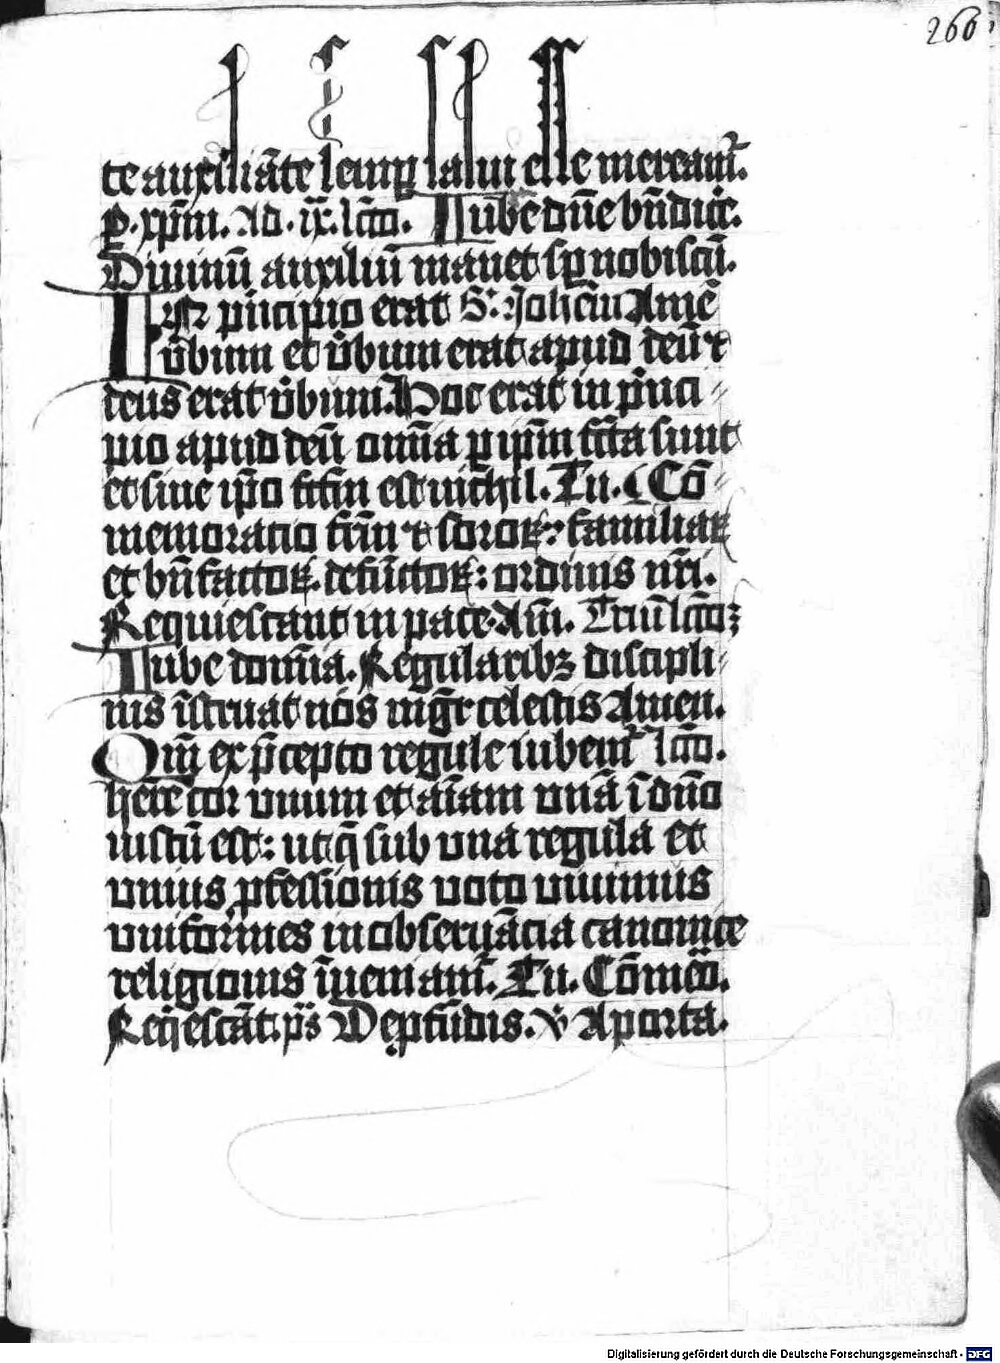 266
te auxiliāte semꝑ salui esse mereamꝰ.
ꝑ. xp̄m. Ad. ix. lcō. Iube dn̄e bn̄dice.
Diuinū auxiliū maneat sꝑ nobiscū.
IN pͥncipio erat S. Johem Amē
v̓bum et v̓bum erat apud deū ⁊
deus erat v̓bum. Hoc erat in pͥnci
pio apud deū omīa ꝑ ip̄m fc̄ta sunt
et sine ip̄o fc̄tm est nichil. Tu. Cō
memoratio frm̄ ⁊ soroꝝ: familiaꝝ
et bn̄factoꝝ. defūctoꝝ: ordinis nr̄i.
Requiescant in pace. Am̄. Triū lcōꝝ
Iube domīa. Regularibꝫ discipli
nis īstruat nos mḡr celestis Amen.
Qm̄ ex p̄cepto regule iubemꝰ lcō.
hēre cor unum et aīam unā ī dn̄o
iustū est: ut q̄ sub una regula et
unius ꝓfessionis uoto uiuimus
uniformes in obseruācia canonice
religionis īueniamꝰ. Tu. Cōmeō.
Req̄escāt. pͥs De ꝓfūdis. ꝟ A porta.
Digitalisierung gefördert durch die Deutsche Forschungsgemeinschaft - DFG